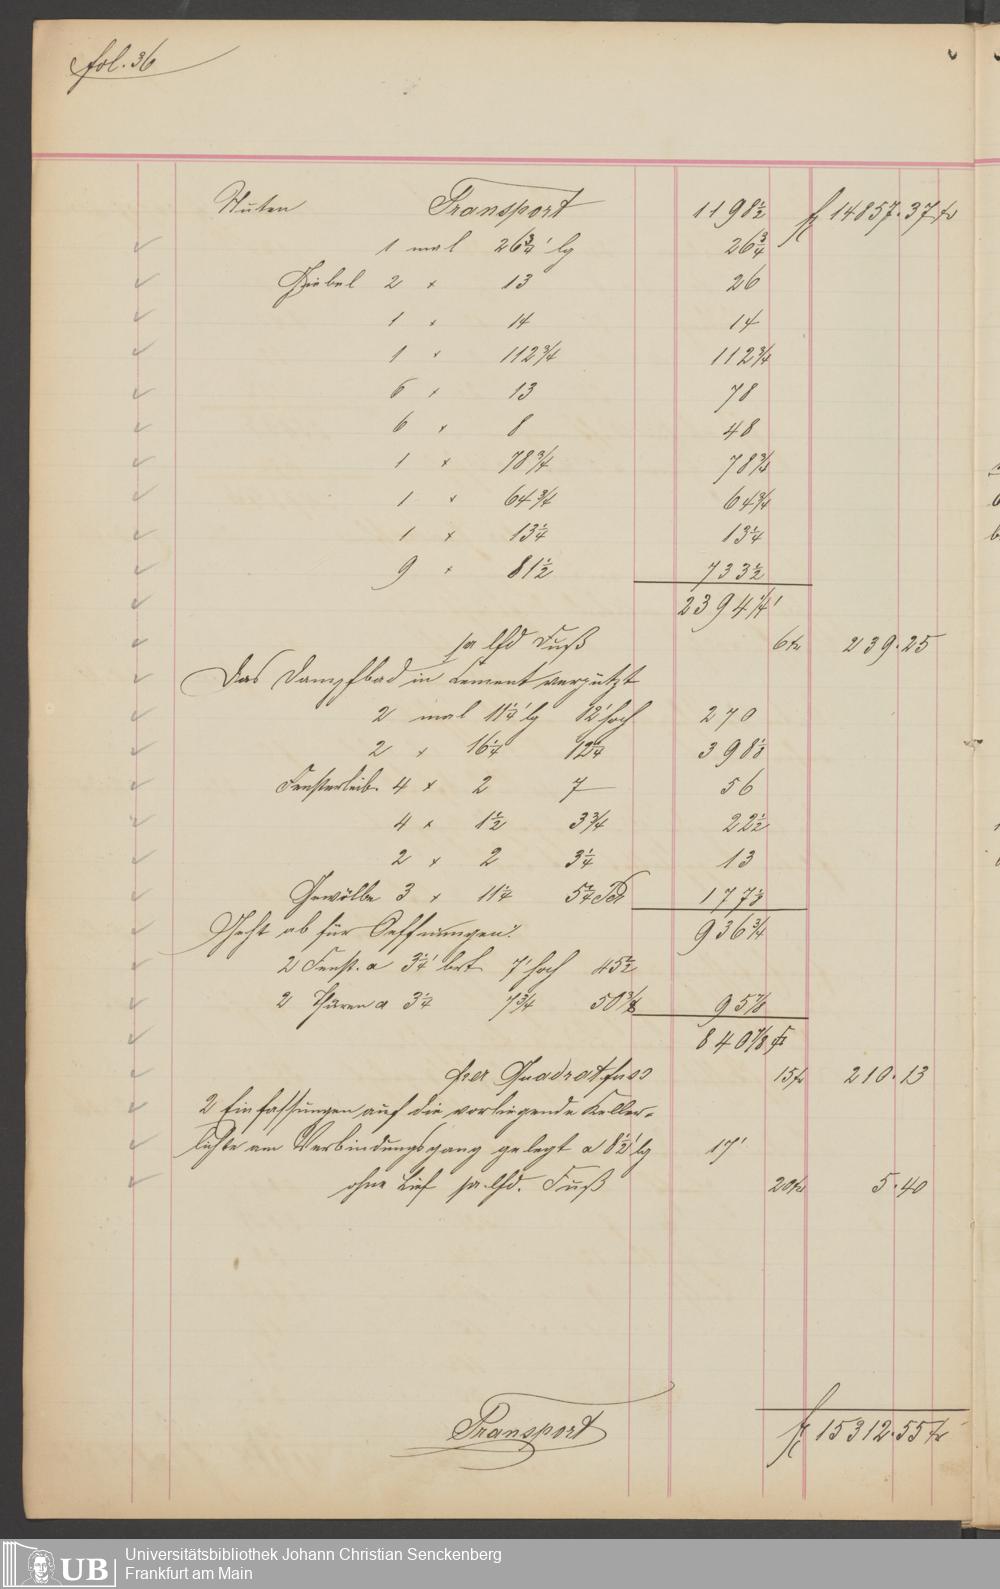 fol. 36
Nuten Transport 1198½ fl 14857.37 kr
1 mal 26¾' lg 26¾
Giebel 2 × 13 26
1 × 14 14
1 × 112¾ 112¾
6 × 13 78
6 × 8 48
1 × 78¾ 78¾
1 × 64¾ 64¾
1 × 13¼ 13¼
9 × 81½ 733½
2394¼'
pa lfd Fuß 6 kr 239.25
Das Dampfbad in Cement verputzt
2 mal 11¼' lg 12' hoch 270
2 × 16¼ 12¼ 398⅛
Fensterleib. 4 × 2 7 56
4 × 1½ 3¾ 22½
2 × 2 3¼ 13
Gewölbe 3 × 11¼ 5¼ 177⅛
Geht ab für Oeffnungen:
936¾
2 Fenst. a 3¼' brt. 7' hoch 45½
2 Thüren a 3¼ 7¾ 50⅜ 95⅞
840⅞
per Quadratfuss 15 kr 210.13
2 Einfassungen auf die vorliegende Keller-
lichte am Verbindungsgang gelegt a 8½' lg 17'
ohne Lief pa lfd. Fuß 20 kr 5.40
Transport fl 15312.55 kr
UB Universitätsbibliothek Johann Christian Senckenberg
Frankfurt am Main